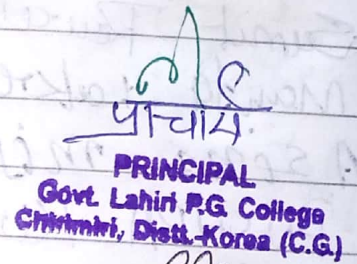 प्राचार्य
PRINCIPAL
Govt. Lahiri P.G. College
Chirimiri, Distt.-Korea (C.G.)